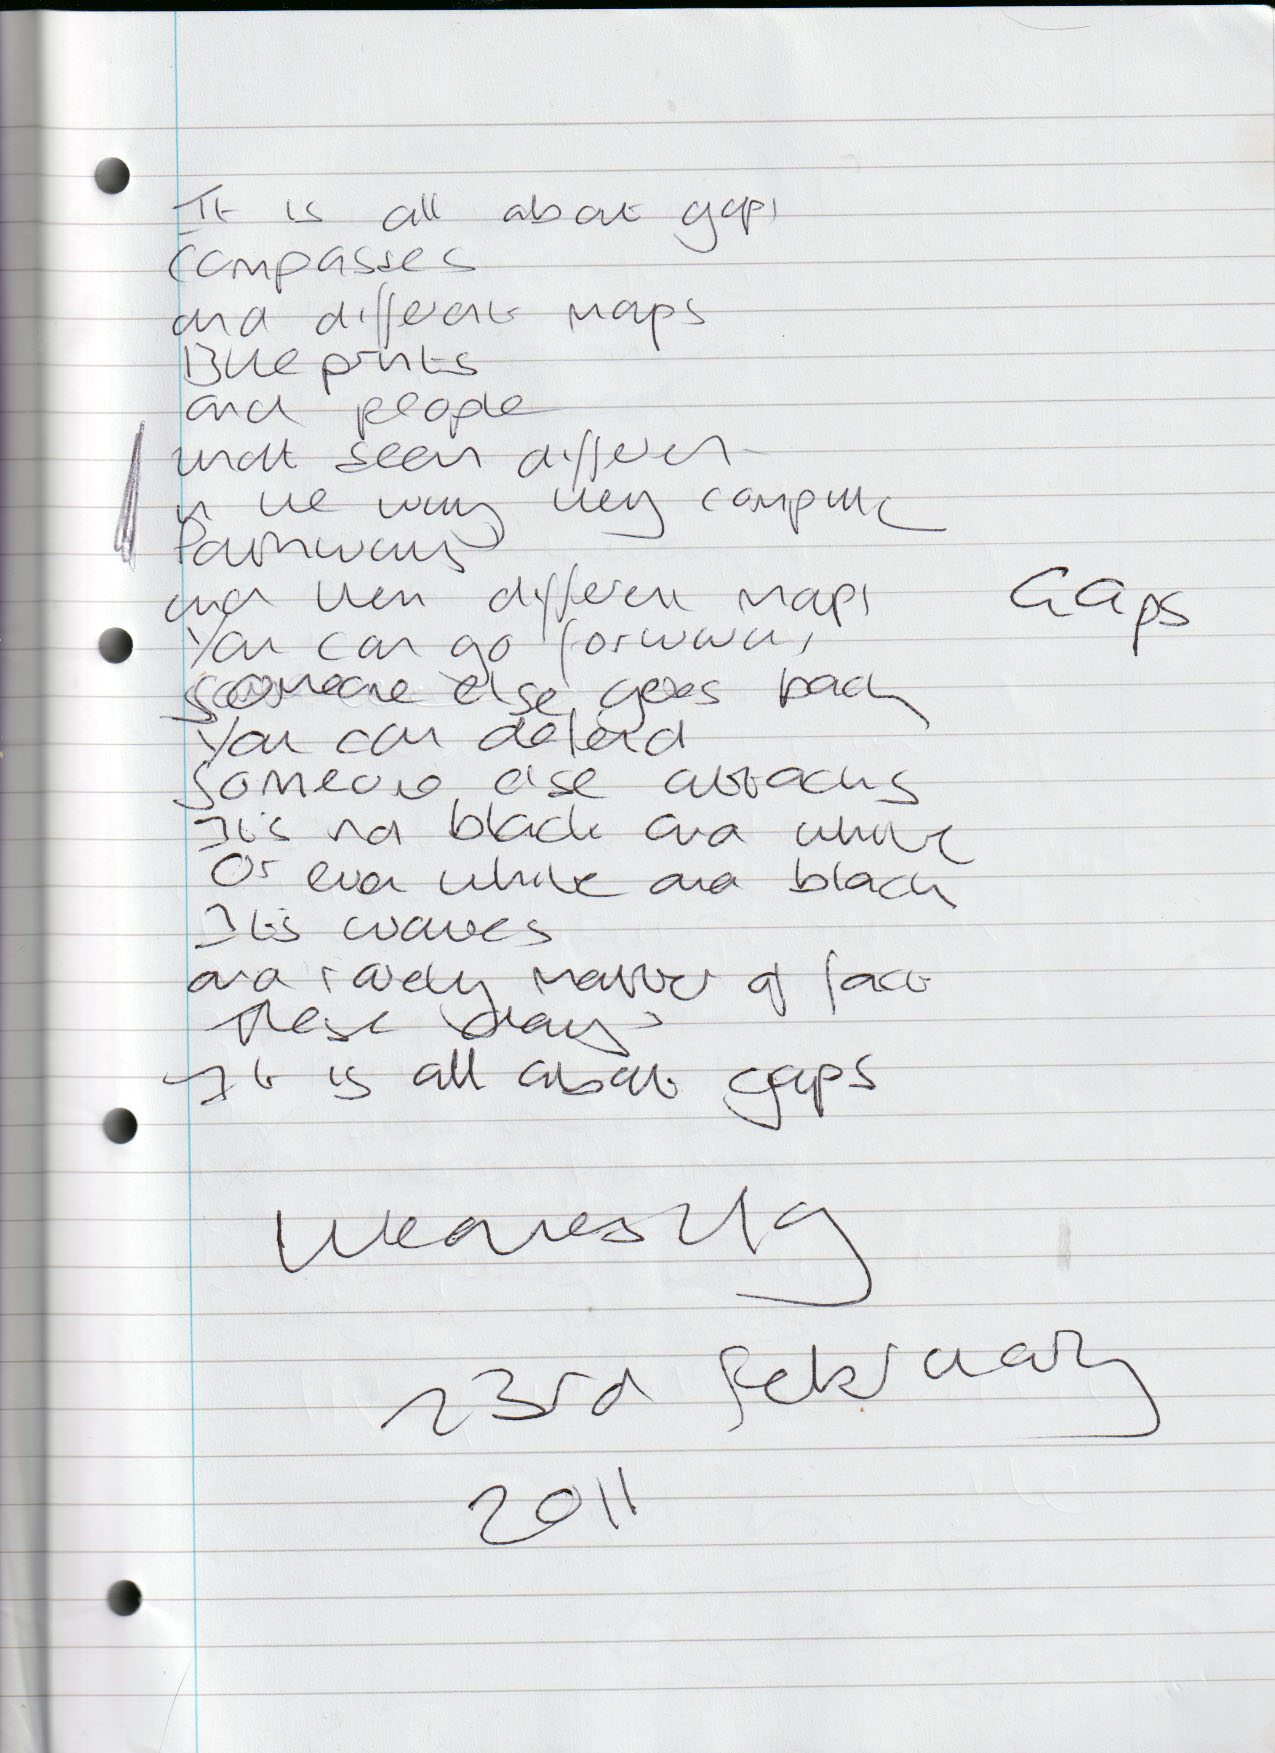 It is all about gaps
Compasses
and different maps
Blueprints
and people
that seem different
in the way they compare
Pathways
and their different maps
Gaps
You can go forward,
someone else goes back
You can defend
Someone else attacks
It's not black and white
Or even white and black
It's waves
and rarely matter of fact
These days
It is all about gaps
Wednesday
23rd February
2011